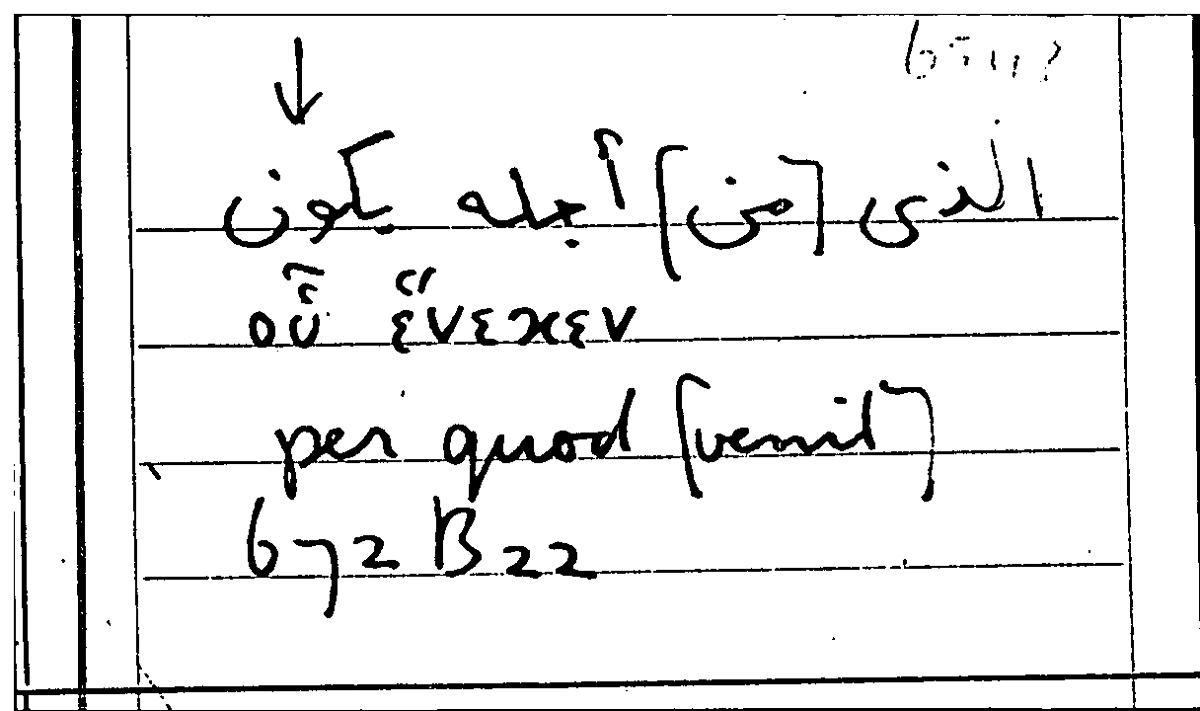 الذى [من] أجله يكون
οὗ ἕνεκεν
per quod [venit]
672 B 22